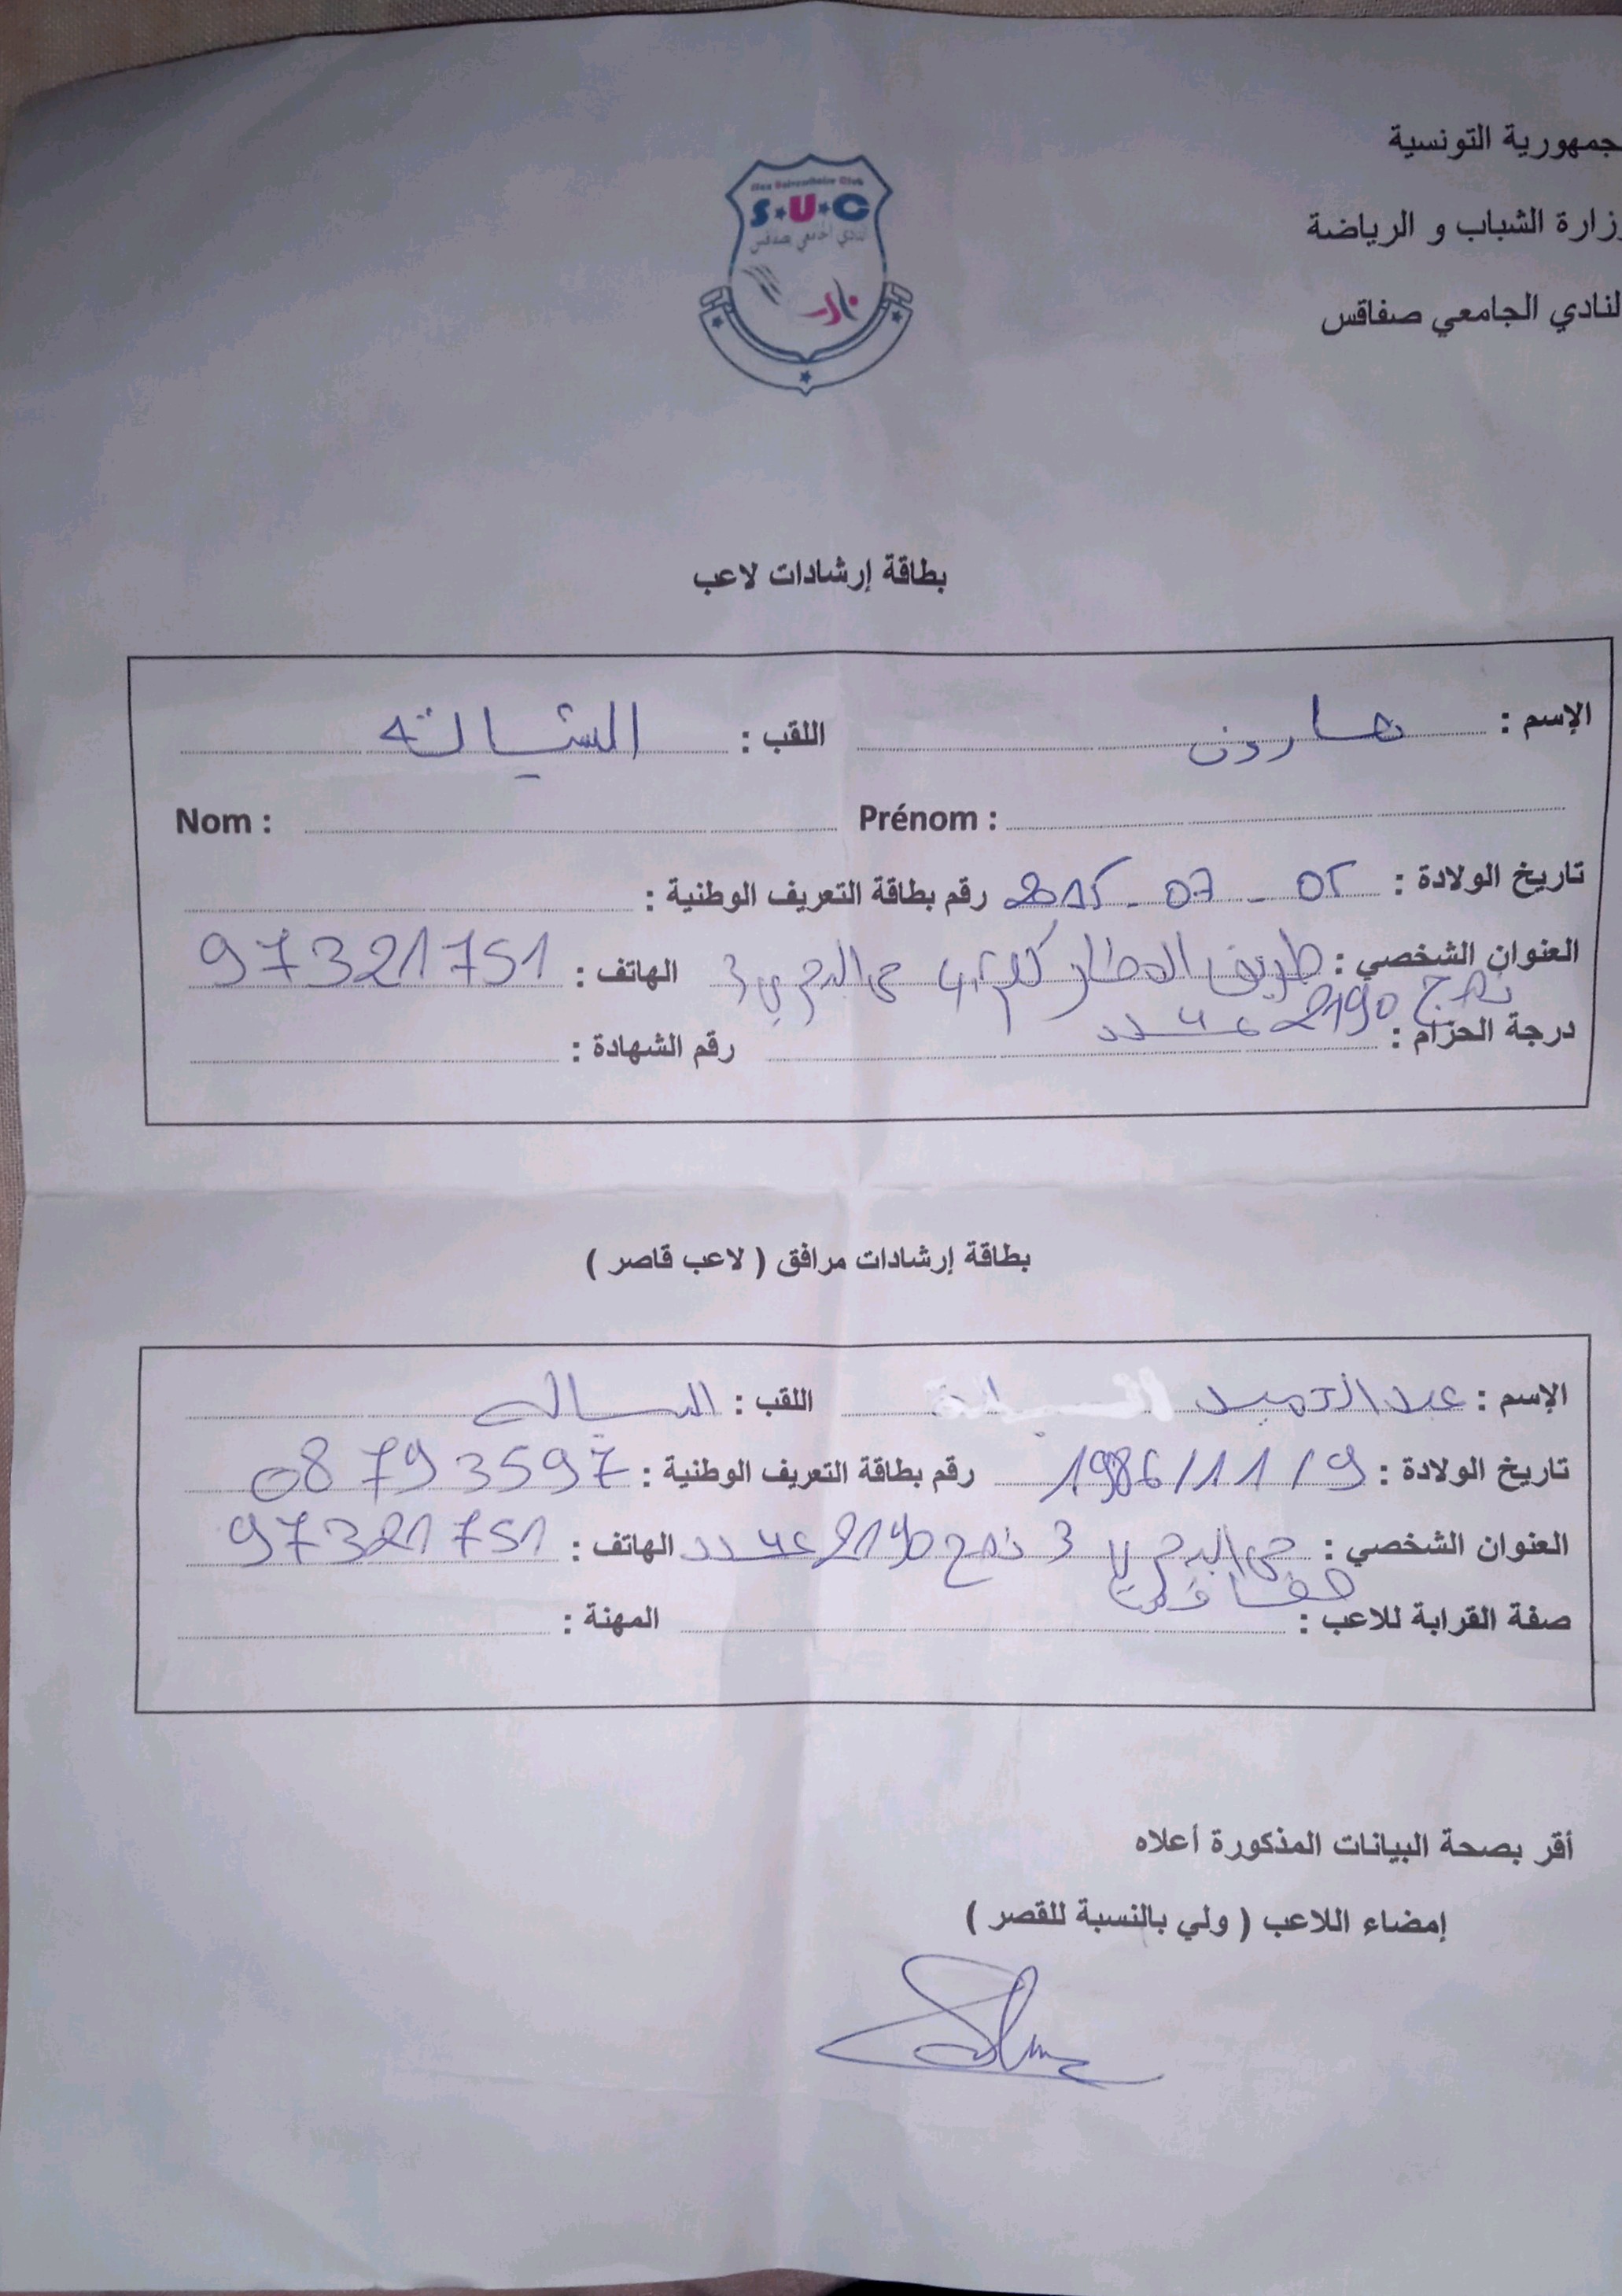 جمهورية التونسية
وزارة الشباب و الرياضة
النادي الجامعي صفاقس
Sfax Universitaire Club
S★U★C
النادي الجامعي بصفاقس
بطاقة إرشادات لاعب
الإسم : هارون اللقب :
Nom : Prénom :
تاريخ الولادة : 05 - 07 - 2015 رقم بطاقة التعريف الوطنية :
العنوان الشخصي : طريق المطار كلم 4,5 حي البدري 3 الهاتف : 97321751
نهج 2190 عدد
درجة الحزام : رقم الشهادة :
بطاقة إرشادات مرافق ( لاعب قاصر )
الإسم : عبد الحميد اللقب :
تاريخ الولادة : 9 / 11 / 1986 رقم بطاقة التعريف الوطنية : 08793597
العنوان الشخصي : حي البدري 3 نهج 2190 عدد الهاتف : 97321751
صفاقس
صفة القرابة للاعب : المهنة :
أقر بصحة البيانات المذكورة أعلاه
إمضاء اللاعب ( ولي بالنسبة للقصر )